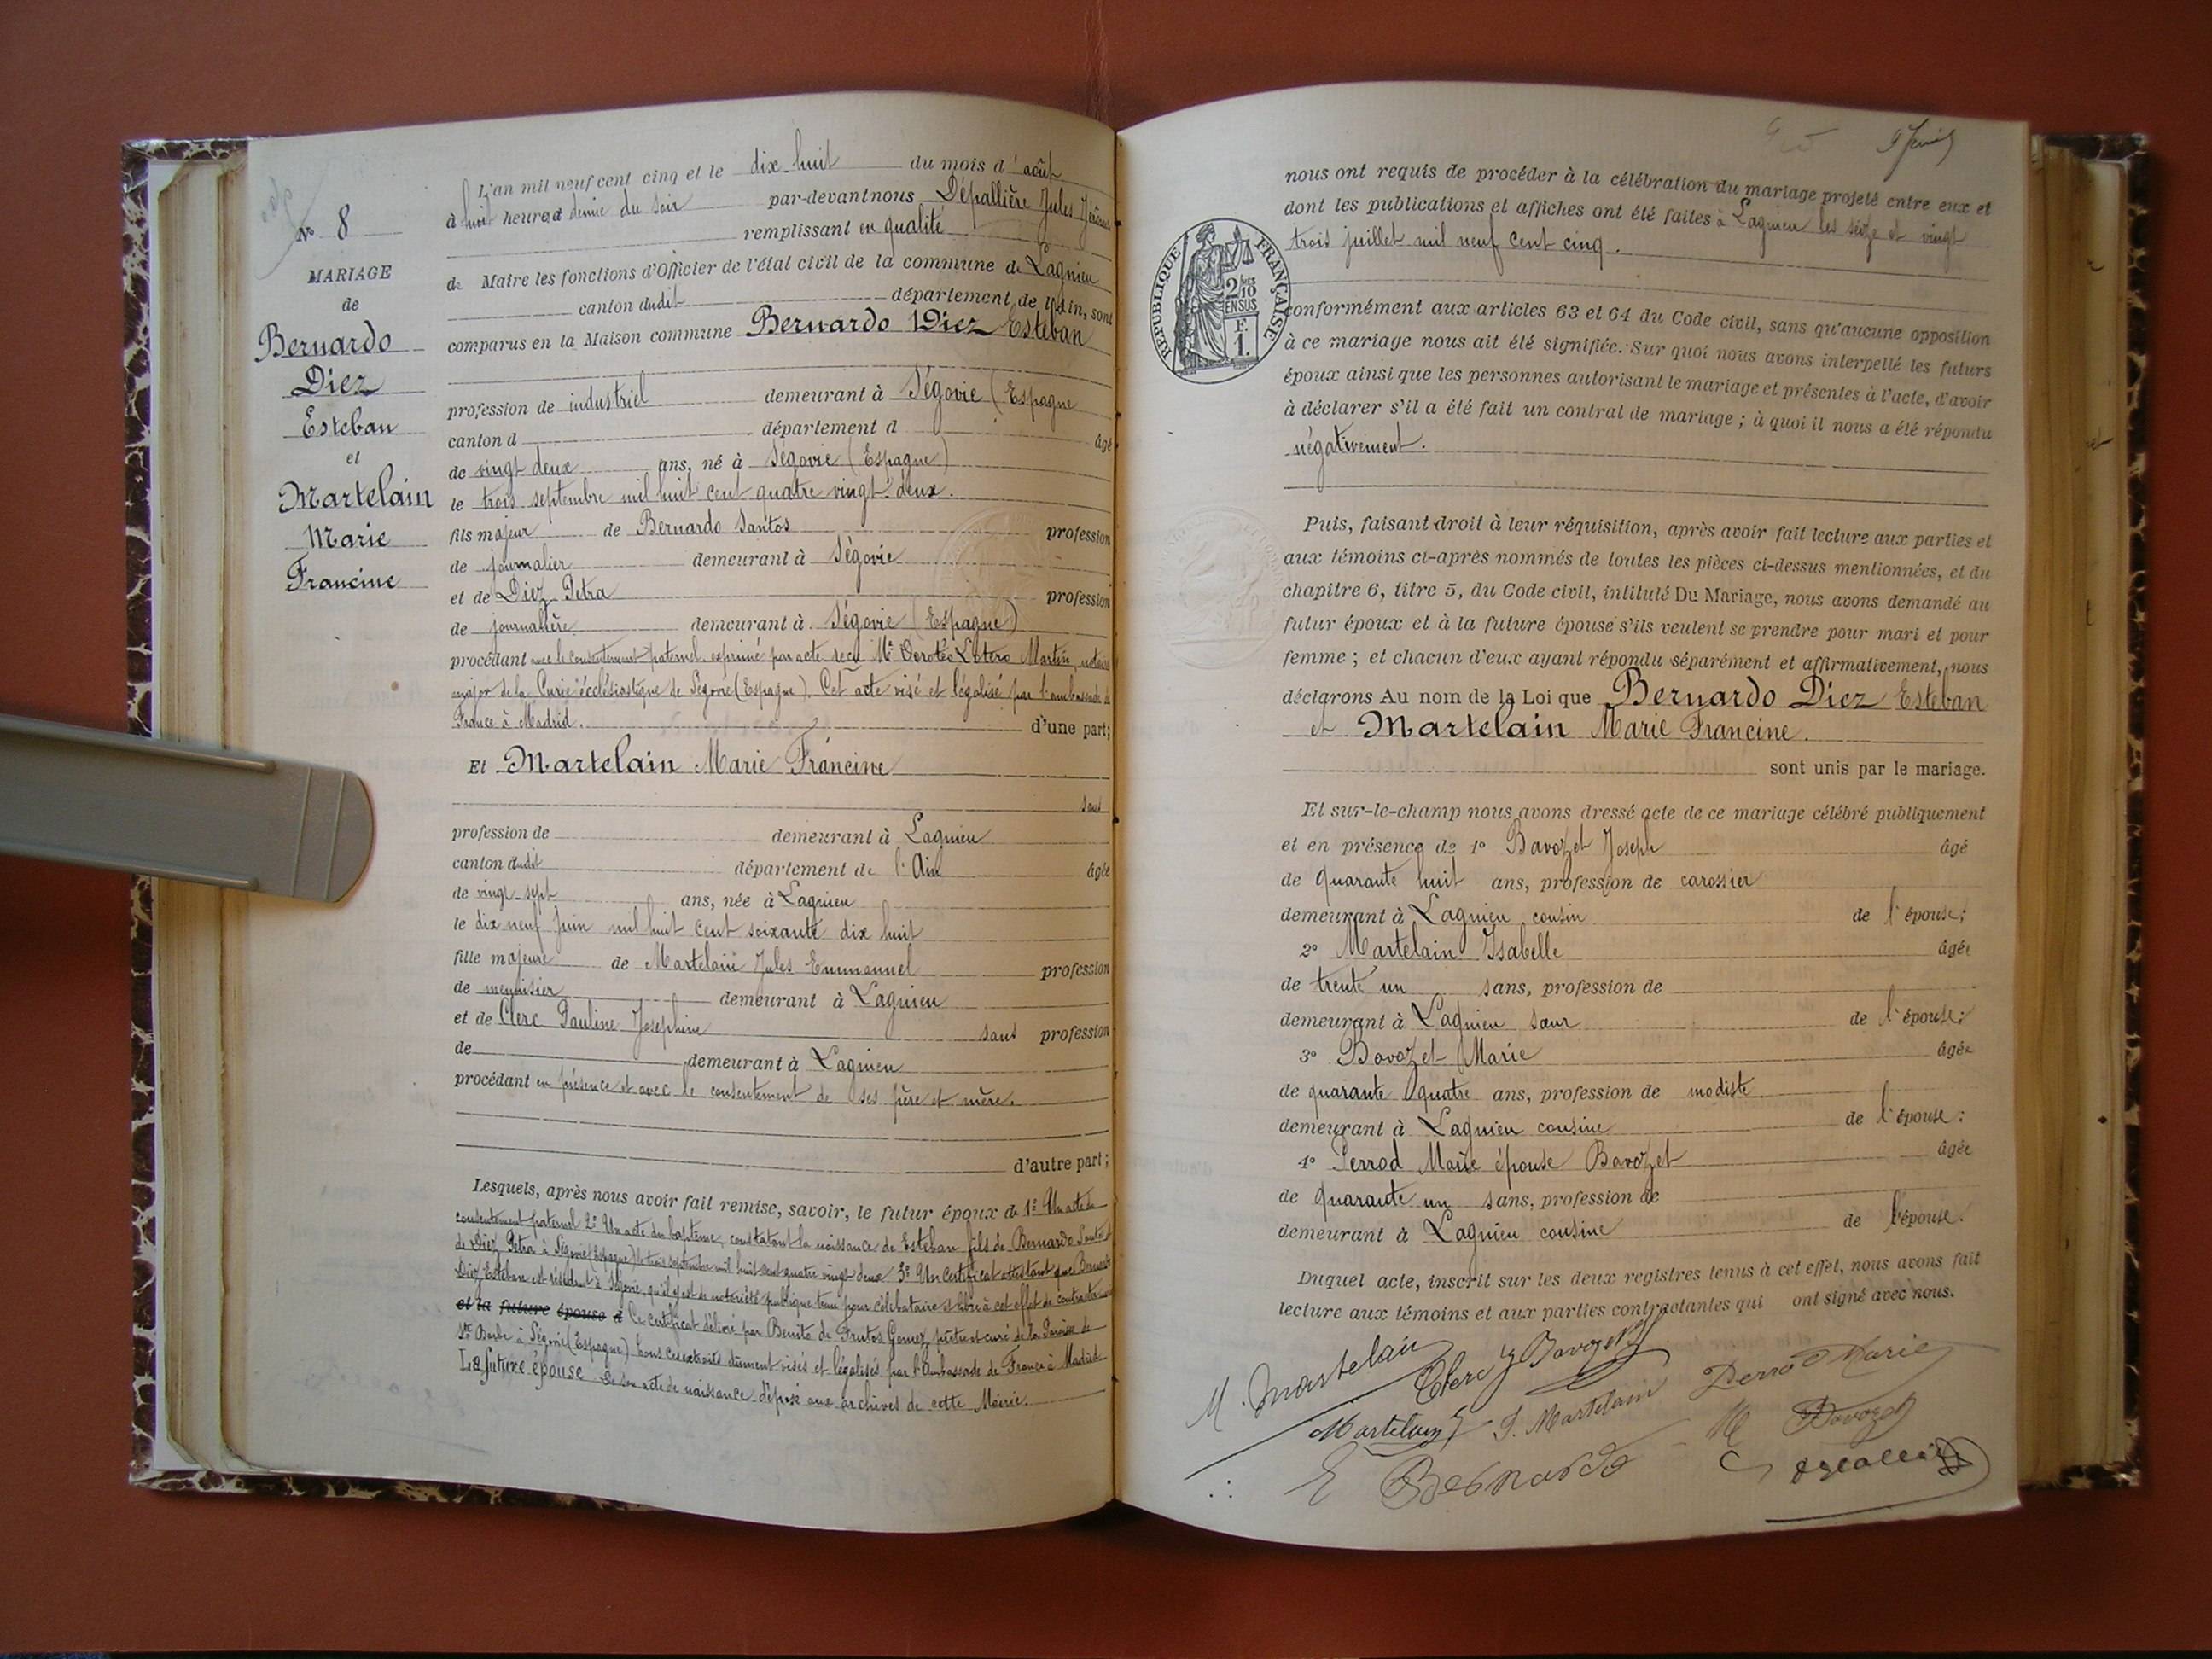 N° 8
MARIAGE
de
Bernardo
Diez
Esteban
et
Martelain
Marie
Francine
L'an mil neuf cent cinq et le dix-huit du mois d'août
à huit heures demie du soir par-devant nous Dépallière Jules Jérôme
remplissant en qualité
de Maire les fonctions d'Officier de l'état civil de la commune de Lagnieu
canton dudit département de l'Ain, sont
comparus en la Maison commune Bernardo Diez Esteban
profession de industriel demeurant à Ségovie (Espagne
canton d département d âgé
de vingt deux ans, né à Ségovie (Espagne)
le trois septembre mil huit cent quatre vingt deux.
fils majeur de Bernardo Santos profession
de journalier demeurant à Ségovie
et de Diez Petra profession
de journalière demeurant à Ségovie (Espagne)
procédant avec le consentement paternel exprimé par acte reçu Me Doroteo Lotero Martin, notaire
major de la Curie écclésiastique de Ségovie (Espagne). Cet acte visé et légalisé par l'ambassade de
France à Madrid. d'une part;
Et Martelain Marie Francine
sans
profession de demeurant à Lagnieu
canton dudit département de l'Ain âgée
de vingt-sept ans, née à Lagnieu
le dix neuf Juin mil huit cent soixante dix huit
fille majeure de Martelain Jules Emmanuel profession
de menuisier demeurant à Lagnieu
et de Clerc Pauline Joséphine sans profession
de demeurant à Lagnieu
procédant en présence et avec le consentement de ses père et mère.
d'autre part;
Lesquels, après nous avoir fait remise, savoir, le futur époux de 1° Un acte de
consentement paternel 2° Un acte de baptême, constatant la naissance de Esteban fils de Bernardo Santos et
de Diez Petra à Ségovie (Espagne) le trois septembre mil huit cent quatre vingt deux 3° Un certificat attestant que Bernardo
Diez Esteban est résidant à Ségovie, qu'il est de notoriété publique tenu pour célibataire et libre à cet effet de contracter
et la future épouse d Ce certificat délivré par Benito de Frutos Gomez prêtre et curé de la Paroisse de
Ste Barbe à Ségovie (Espagne) tous ces extraits dûment visés et légalisés par l'Ambassade de France à Madrid
La future épouse De son acte de naissance déposé aux archives de cette Mairie.
nous ont requis de procéder à la célébration du mariage projeté entre eux et
dont les publications et affiches ont été faites à Lagnieu les seize et vingt
trois juillet mil neuf cent cinq.
RÉPUBLIQUE FRANÇAISE
2 10 MES
EN SUS
F.
1.
conformément aux articles 63 et 64 du Code civil, sans qu'aucune opposition
à ce mariage nous ait été signifiée. Sur quoi nous avons interpellé les futurs
époux ainsi que les personnes autorisant le mariage et présentes à l'acte, d'avoir
à déclarer s'il a été fait un contrat de mariage ; à quoi il nous a été répondu
négativement.
Puis, faisant droit à leur réquisition, après avoir fait lecture aux parties et
aux témoins ci-après nommés de toutes les pièces ci-dessus mentionnées, et du
chapitre 6, titre 5, du Code civil, intitulé Du Mariage, nous avons demandé au
futur époux et à la future épouse s'ils veulent se prendre pour mari et pour
femme ; et chacun d'eux ayant répondu séparément et affirmativement, nous
déclarons Au nom de la Loi que Bernardo Diez Esteban
et Martelain Marie Francine.
sont unis par le mariage.
Et sur-le-champ nous avons dressé acte de ce mariage célébré publiquement
et en présence de 1° Bavozet Joseph âgé
de quarante huit ans, profession de carossier
demeurant à Lagnieu cousin de l'épouse;
2° Martelain Isabelle âgée
de trente un ans, profession de
demeurant à Lagnieu sœur de l'épouse;
3° Bavozet Marie âgée
de quarante quatre ans, profession de modiste
demeurant à Lagnieu cousine de l'épouse:
4° Perrod Marie épouse Bavozet âgée
de quarante un ans, profession de
demeurant à Lagnieu cousine de l'épouse.
Duquel acte, inscrit sur les deux registres tenus à cet effet, nous avons fait
lecture aux témoins et aux parties contractantes qui ont signé avec nous.
M. Martelain Clerc J Bavozet Perrod Marie
Martelain J. Martelain M Bavozet
E Bernardo